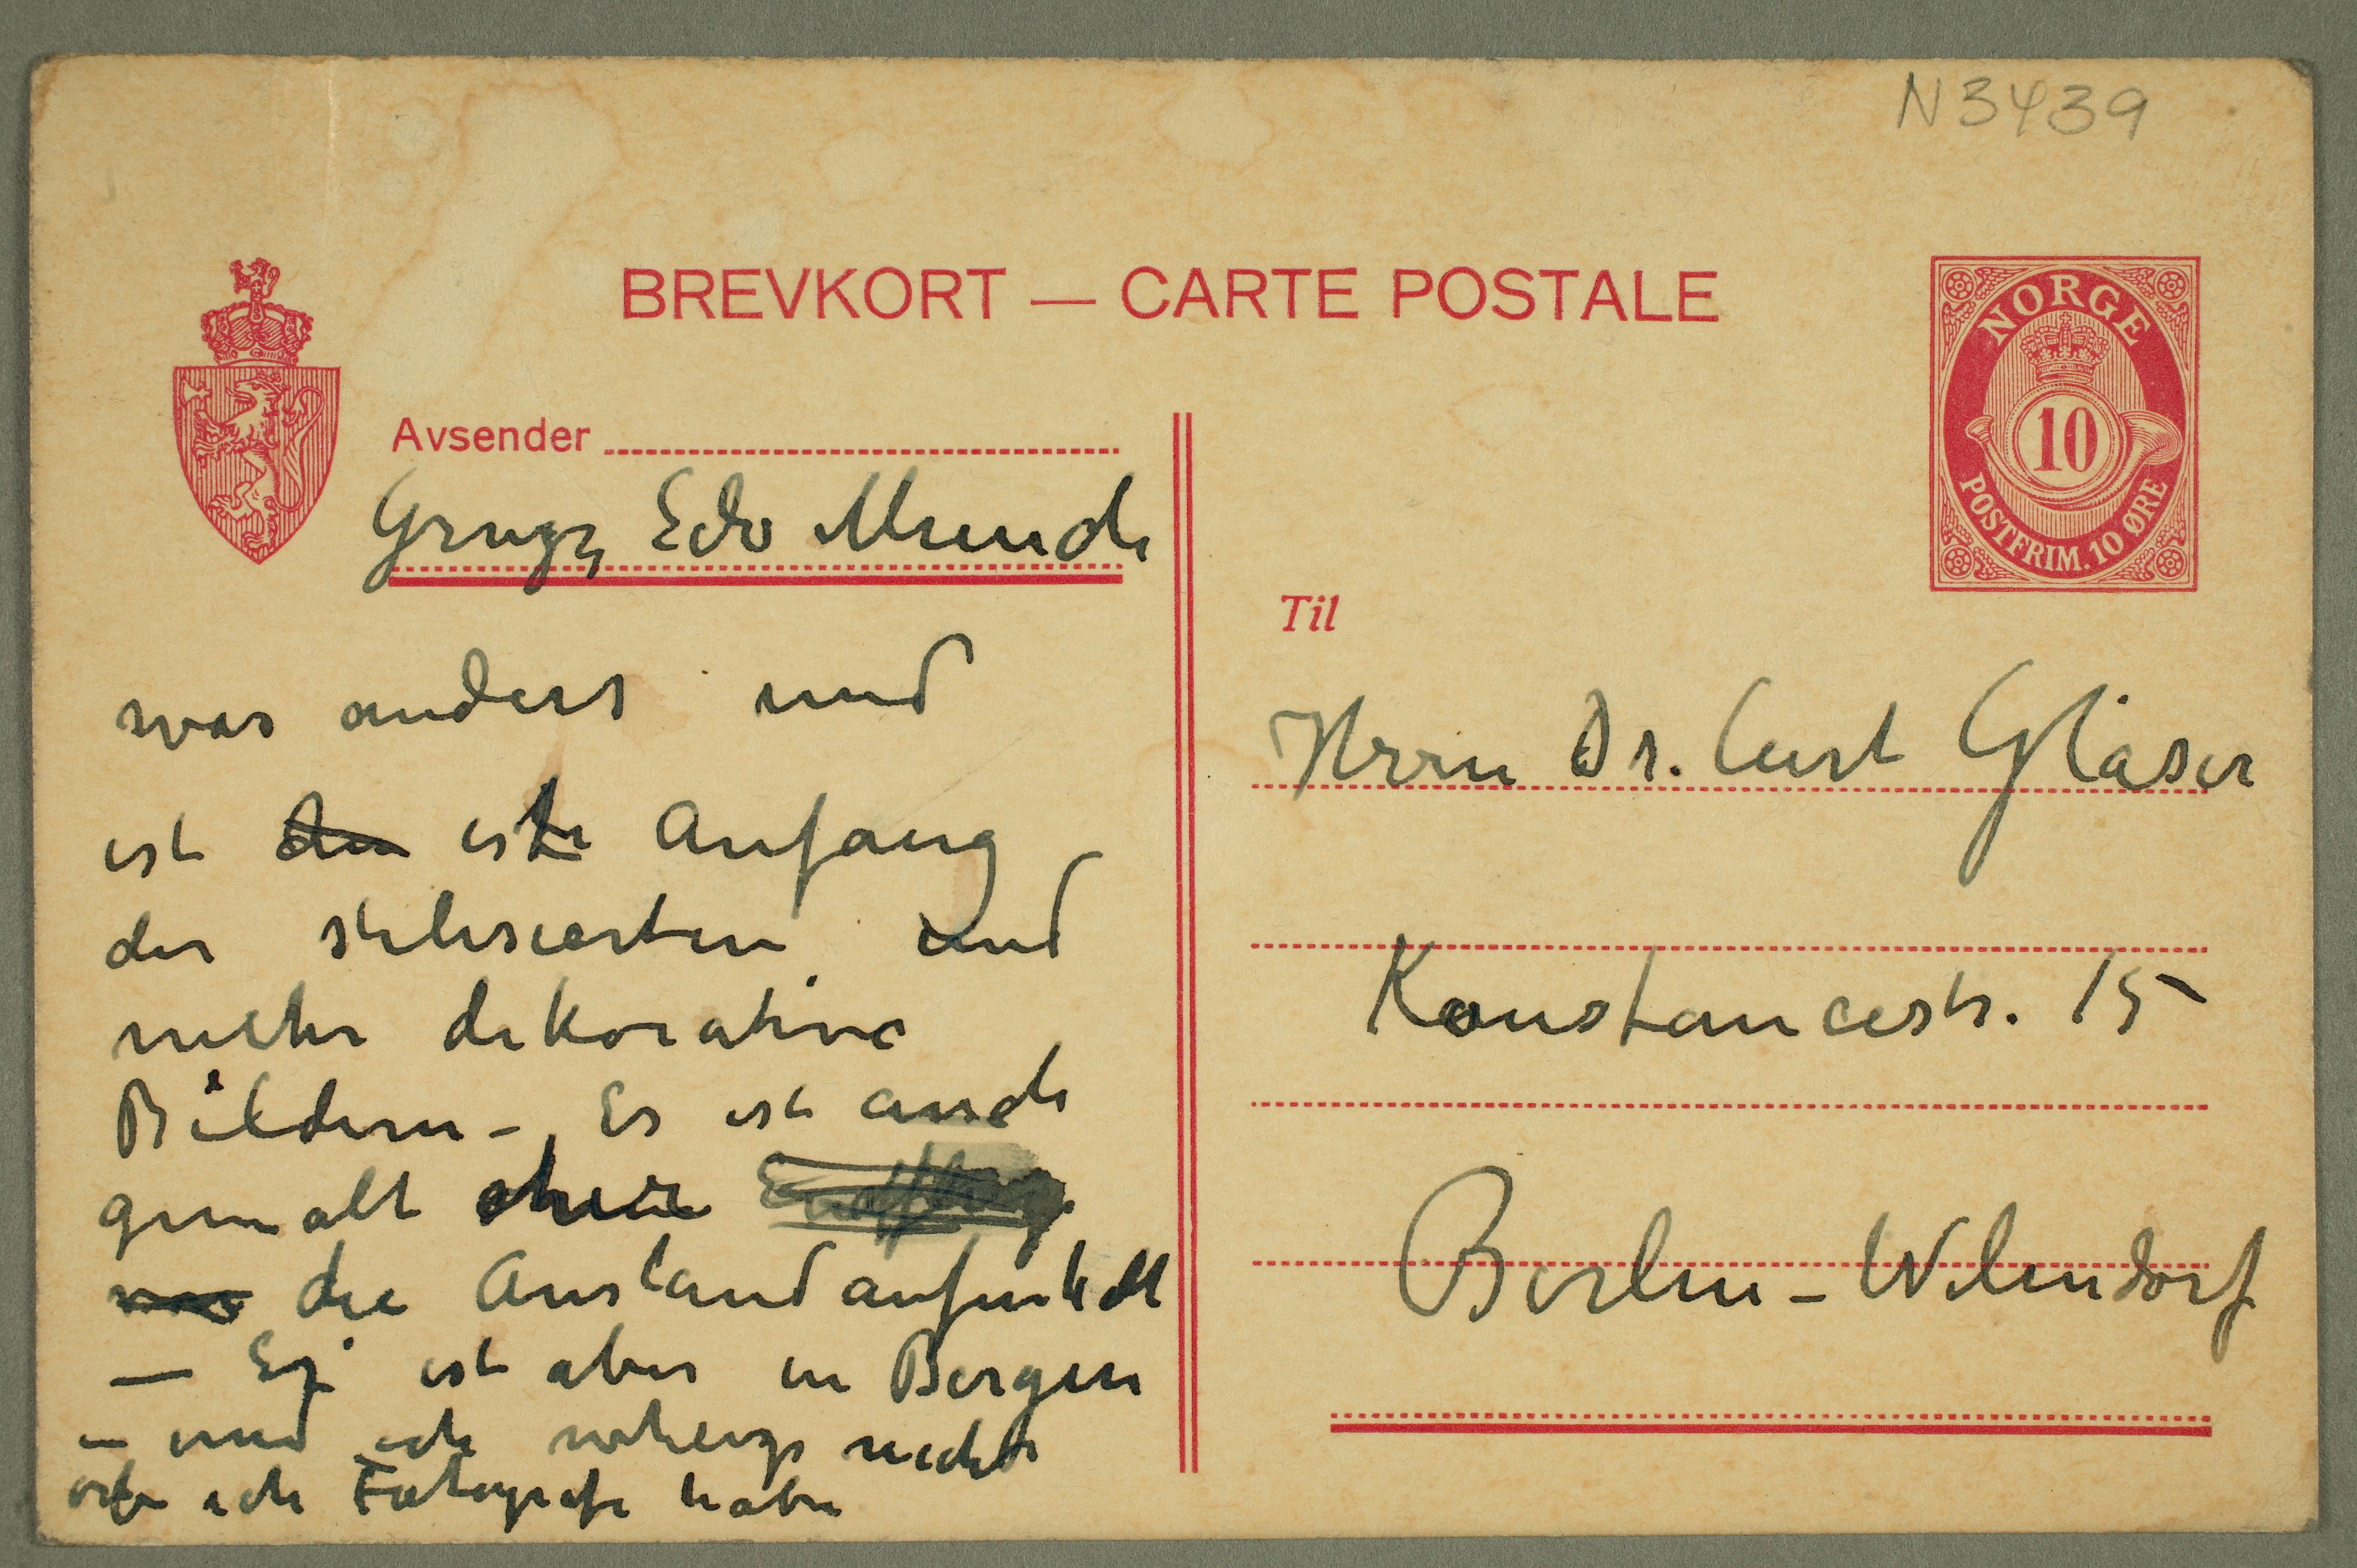 N3439
BREVKORT — CARTE POSTALE
NORGE
10
POSTFRIM. 10 ØRE
Avsender
Edv Munch
was anders und
ist Anfang
der stilisierten und
mehr dekorative
Bildern - Es ist auch
gemalt
die Auslandaufenthalt
— Es ist aber in Bergen
- und ich nicht
ob ich Fotografi habe
Til
Herrn Dr. Curt Gläser
Konstancestr. 15
Berlin - Wilmdorf